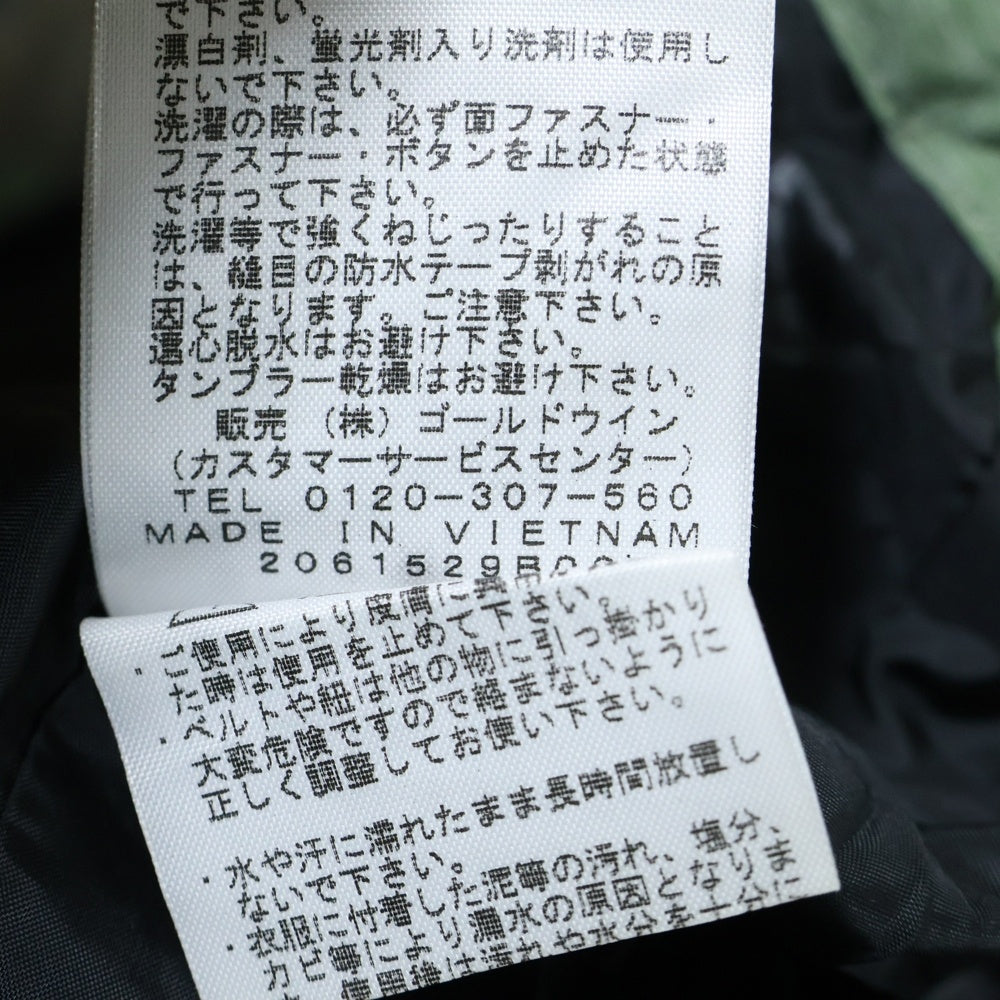 で下さい。
漂白剤、蛍光剤入り洗剤は使用し
ないで下さい。
洗濯の際は、必ず面ファスナー・
ファスナー・ボタンを止めた状態
で行って下さい。
洗濯等で強くねじったりすること
は、縫目の防水テープ剥がれの原
因となります。ご注意下さい。
遠心脱水はお避け下さい。
タンブラー乾燥はお避け下さい。
販売 (株) ゴールドウイン
(カスタマーサービスセンター)
TEL 0120-307-560
MADE IN VIETNAM
2061529B
・ご使用により度
た時は使用を止めて下さい。
・ベルトや紐は他の物に引っ掛かり
大変危険ですので絡まないように
正しく調整してお使い下さい。
・水や汗に濡れたまま長時間放置し
ないで下さい。
・衣服に付着した泥等の汚れ、塩分、
カビ等により漏水の原因となりま
汚れや水分を十分に